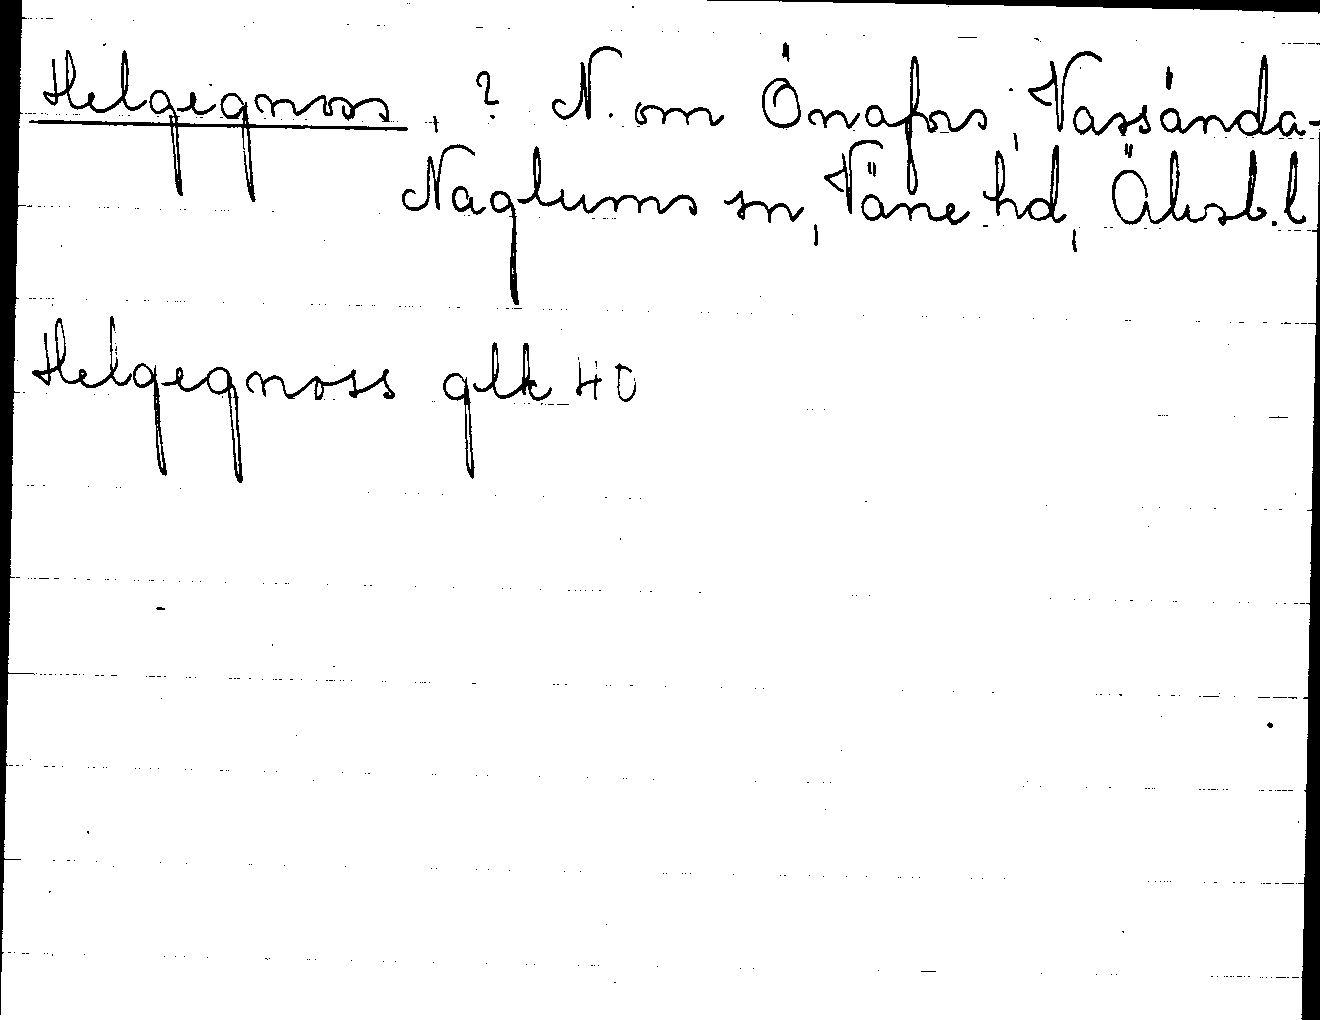 Helgegnoss, ? N. om Önafors, Vassända-
Naglums sn, Väne hd, Älvsb. l
Helgegnoss glk 40